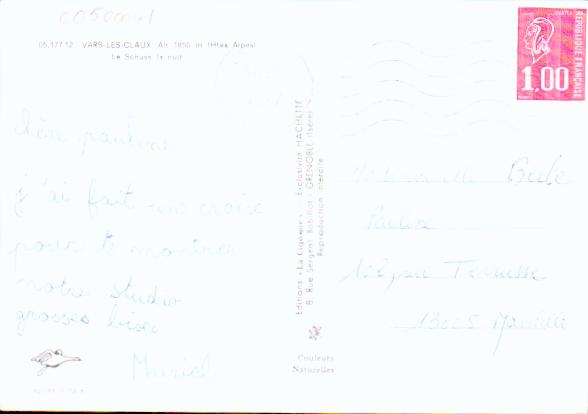 C0500001
05.177.12 VARS-LES-CLAUX Alt. 1850 m (Htes Alpes)
Le Schuss la nuit
POSTES
REPUBLIQUE FRANCAISE
1,00
chère pauline
j'ai fait une croix
pour te montrer
notre studio
grosses bises
Muriel
Editions « La Cigogne » - Exclusivité HACHETTE
8, Rue Sergent Bobillot - GRENOBLE (Isère)
Reproduction interdite
Couleurs
Naturelles
Mademoiselle
Pauline
102, rue Terrusse
13005 Marseille